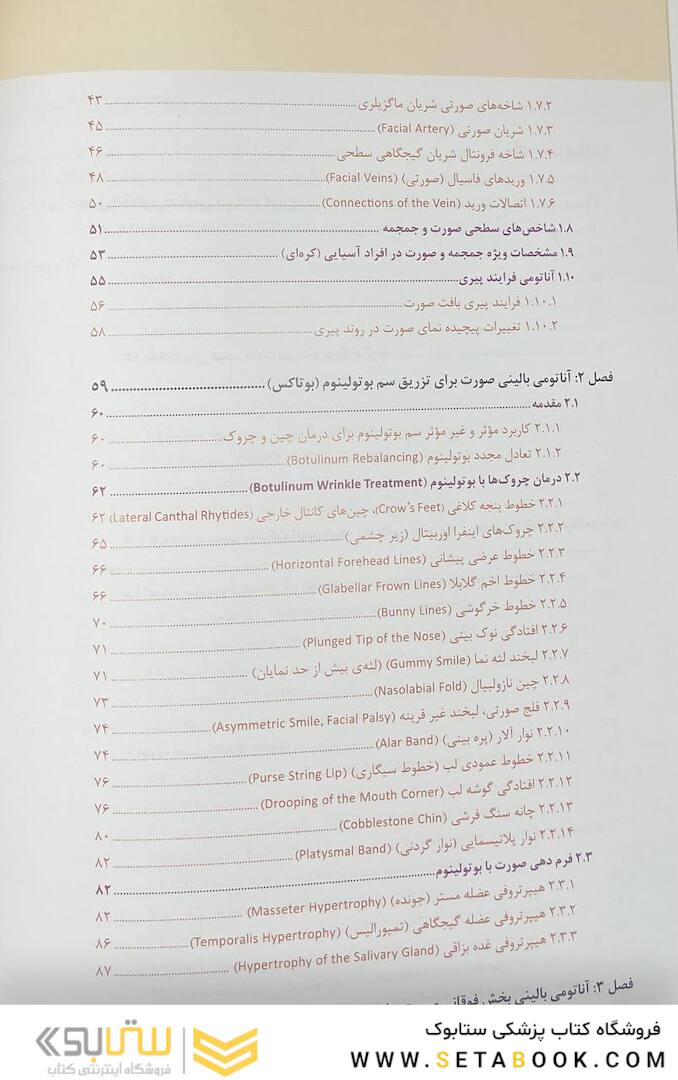 ۱.۷.۲ شاخه‌های صورتی شریان ماگزیلری ........ ۴۳
۱.۷.۳ شریان صورتی (Facial Artery) ........ ۴۵
۱.۷.۴ شاخه فرونتال شریان گیجگاهی سطحی ........ ۴۶
۱.۷.۵ وریدهای فاسیال (صورتی) (Facial Veins) ........ ۴۸
۱.۷.۶ اتصالات ورید (Connections of the Vein) ........ ۵۰
۱.۸ شاخص‌های سطحی صورت و جمجمه ........ ۵۱
۱.۹ مشخصات ویژه جمجمه و صورت در افراد آسیایی (کره‌ای) ........ ۵۳
۱.۱۰ آناتومی فرایند پیری ........ ۵۵
۱.۱۰.۱ فرایند پیری بافت صورت ........ ۵۶
۱.۱۰.۲ تغییرات پیچیده نمای صورت در روند پیری ........ ۵۸
فصل ۲: آناتومی بالینی صورت برای تزریق سم بوتولینوم (بوتاکس) ........ ۵۹
۲.۱ مقدمه ........ ۶۰
۲.۱.۱ کاربرد مؤثر و غیر مؤثر سم بوتولینوم برای درمان چین و چروک ........ ۶۰
۲.۱.۲ تعادل مجدد بوتولینوم (Botulinum Rebalancing) ........ ۶۰
۲.۲ درمان چروک‌ها با بوتولینوم (Botulinum Wrinkle Treatment) ........ ۶۲
۲.۲.۱ خطوط پنجه کلاغی (Crow’s Feet)، چین‌های کانتال خارجی (Lateral Canthal Rhytides) ۶۲
۲.۲.۲ چروک‌های اینفرا اوربیتال (زیر چشمی) ........ ۶۵
۲.۲.۳ خطوط عرضی پیشانی (Horizontal Forehead Lines) ........ ۶۶
۲.۲.۴ خطوط اخم گلابلا (Glabellar Frown Lines) ........ ۶۶
۲.۲.۵ خطوط خرگوشی (Bunny Lines) ........ ۷۰
۲.۲.۶ افتادگی نوک بینی (Plunged Tip of the Nose) ........ ۷۱
۲.۲.۷ لبخند لثه نما (Gummy Smile) (لثه‌ی بیش از حد نمایان) ........ ۷۱
۲.۲.۸ چین نازولبیال (Nasolabial Fold) ........ ۷۳
۲.۲.۹ فلج صورتی، لبخند غیر قرینه (Asymmetric Smile, Facial Palsy) ........ ۷۴
۲.۲.۱۰ نوار آلار (پره بینی) (Alar Band) ........ ۷۴
۲.۲.۱۱ خطوط عمودی لب (خطوط سیگاری) (Purse String Lip) ........ ۷۶
۲.۲.۱۲ افتادگی گوشه لب (Drooping of the Mouth Corner) ........ ۷۶
۲.۲.۱۳ چانه سنگ فرشی (Cobblestone Chin) ........ ۸۰
۲.۲.۱۴ نوار پلاتیسمایی (نوار گردنی) (Platysmal Band) ........ ۸۲
۲.۳ فرم دهی صورت با بوتولینوم ........ ۸۲
۲.۳.۱ هیپرتروفی عضله مستر (جونده) (Masseter Hypertrophy) ........ ۸۲
۲.۳.۲ هیپرتروفی عضله گیجگاهی (تمپورالیس) (Temporalis Hypertrophy) ........ ۸۶
۲.۳.۳ هیپرتروفی غده بزاقی (Hypertrophy of the Salivary Gland) ........ ۸۷
فصل ۳: آناتومی بالینی بخش فوقانی
فروشگاه کتاب پزشکی ستابوک
WWW.SETABOOK.COM
ستابوک
فروشگاه اینترنتی کتاب